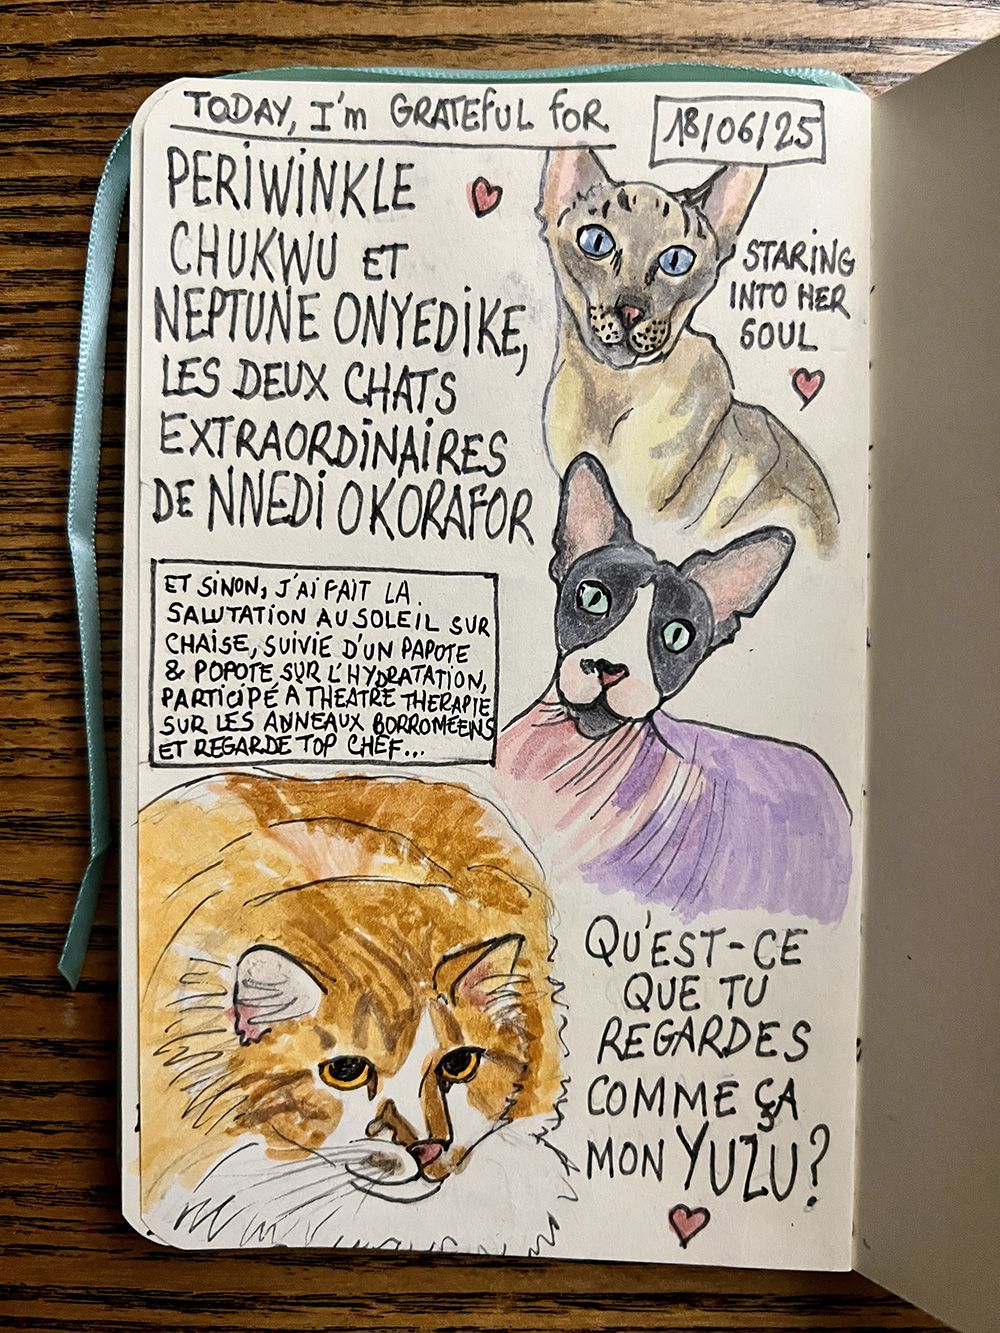 TODAY, I'm GRATEFUL FOR
18/06/25
PERIWINKLE
CHUKWU ET
NEPTUNE ONYEDIKE,
LES DEUX CHATS
EXTRAORDINAIRES
DE NNEDI OKORAFOR
STARING
INTO HER
SOUL
ET SINON, J'AI FAIT LA
SALUTATION AU SOLEIL SUR
CHAISE, SUIVIE D'UN PAPOTE
& POPOTE SUR L'HYDRATATION,
PARTICIPÉ A THEATRE THERAPIE
SUR LES ANNEAUX BORROMÉENS
ET REGARDE TOP CHEF...
QU'EST-CE
QUE TU
REGARDES
COMME ÇA
MON YUZU?